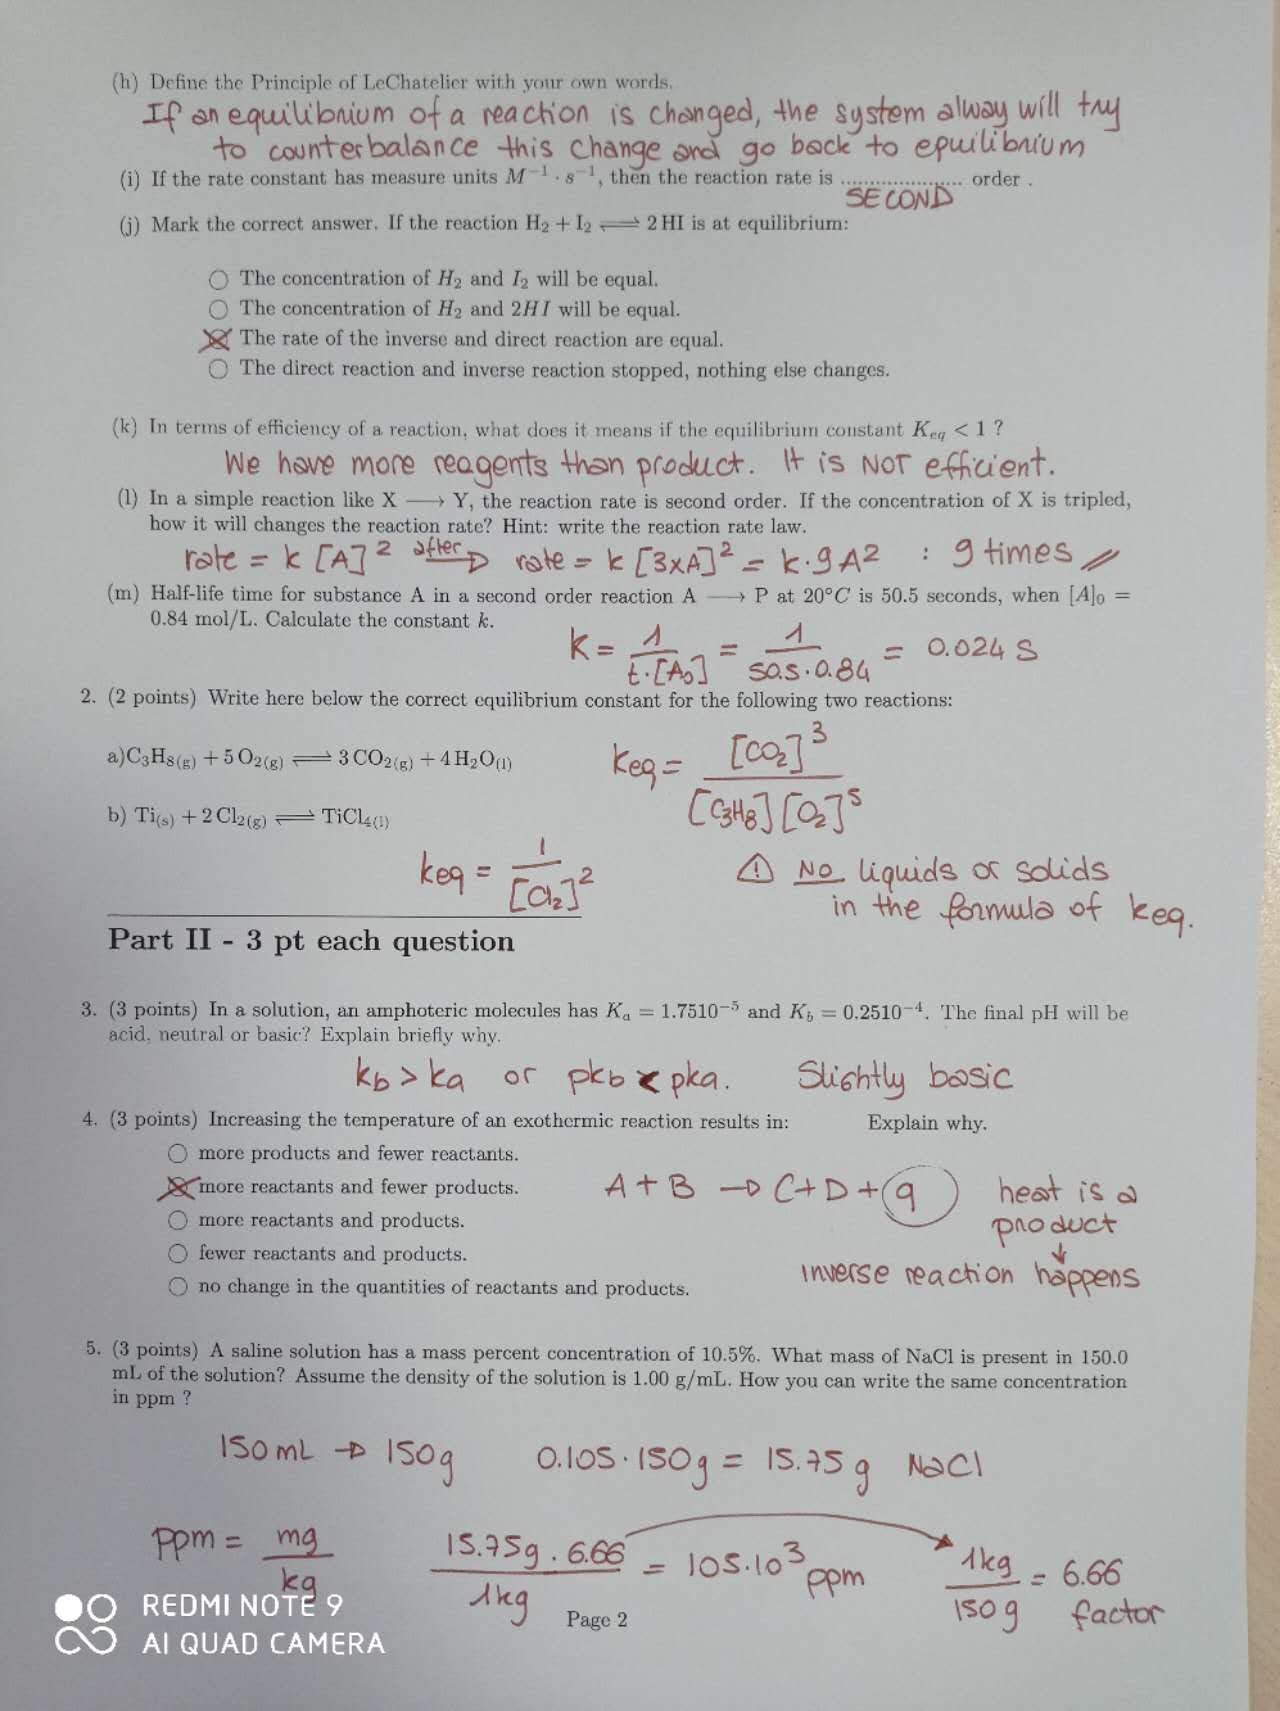 (h) Define the Principle of LeChatelier with your own words.
If an equilibrium of a reaction is changed, the system alway will try
to counterbalance this change and go back to equilibrium
(i) If the rate constant has measure units M⁻¹ · s⁻¹, then the reaction rate is .................... order .
SECOND
(j) Mark the correct answer. If the reaction H₂ + I₂ ⇌ 2 HI is at equilibrium:
○ The concentration of H₂ and I₂ will be equal.
○ The concentration of H₂ and 2HI will be equal.
⊗ The rate of the inverse and direct reaction are equal.
○ The direct reaction and inverse reaction stopped, nothing else changes.
(k) In terms of efficiency of a reaction, what does it means if the equilibrium constant Keq < 1 ?
We have more reagents than product. It is NOT efficient.
(l) In a simple reaction like X ⟶ Y, the reaction rate is second order. If the concentration of X is tripled,
how it will changes the reaction rate? Hint: write the reaction rate law.
rate = k [A]² after → rate = k [3×A]² = k·9A² : 9 times //
(m) Half-life time for substance A in a second order reaction A ⟶ P at 20°C is 50.5 seconds, when [A]₀ =
0.84 mol/L. Calculate the constant k.
K = 1 / t·[A₀] = 1 / 50.5·0.84 = 0.024 s
2. (2 points) Write here below the correct equilibrium constant for the following two reactions:
a)C₃H₈(g) + 5 O₂(g) ⇌ 3 CO₂(g) + 4 H₂O(l)
keq = [CO₂]³ / [C₃H₈][O₂]⁵
b) Ti(s) + 2 Cl₂(g) ⇌ TiCl₄(l)
keq = 1 / [Cl₂]²
⚠ No liquids or solids
in the formula of keq.
Part II - 3 pt each question
3. (3 points) In a solution, an amphoteric molecules has Kₐ = 1.7510⁻⁵ and K_b = 0.2510⁻⁴. The final pH will be
acid, neutral or basic? Explain briefly why.
kb > ka or pkb < pka. Slightly basic
4. (3 points) Increasing the temperature of an exothermic reaction results in: Explain why.
○ more products and fewer reactants.
⊗ more reactants and fewer products.
○ more reactants and products.
○ fewer reactants and products.
○ no change in the quantities of reactants and products.
A + B → C + D + q heat is a
product
↓
inverse reaction happens
5. (3 points) A saline solution has a mass percent concentration of 10.5%. What mass of NaCl is present in 150.0
mL of the solution? Assume the density of the solution is 1.00 g/mL. How you can write the same concentration
in ppm ?
150 mL → 150g 0.105·150g = 15.75 g NaCl
ppm = mg / kg 15.75g · 6.66 / 1kg = 105·10³ ppm 1kg / 150g = 6.66
factor
Page 2
REDMI NOTE 9
AI QUAD CAMERA